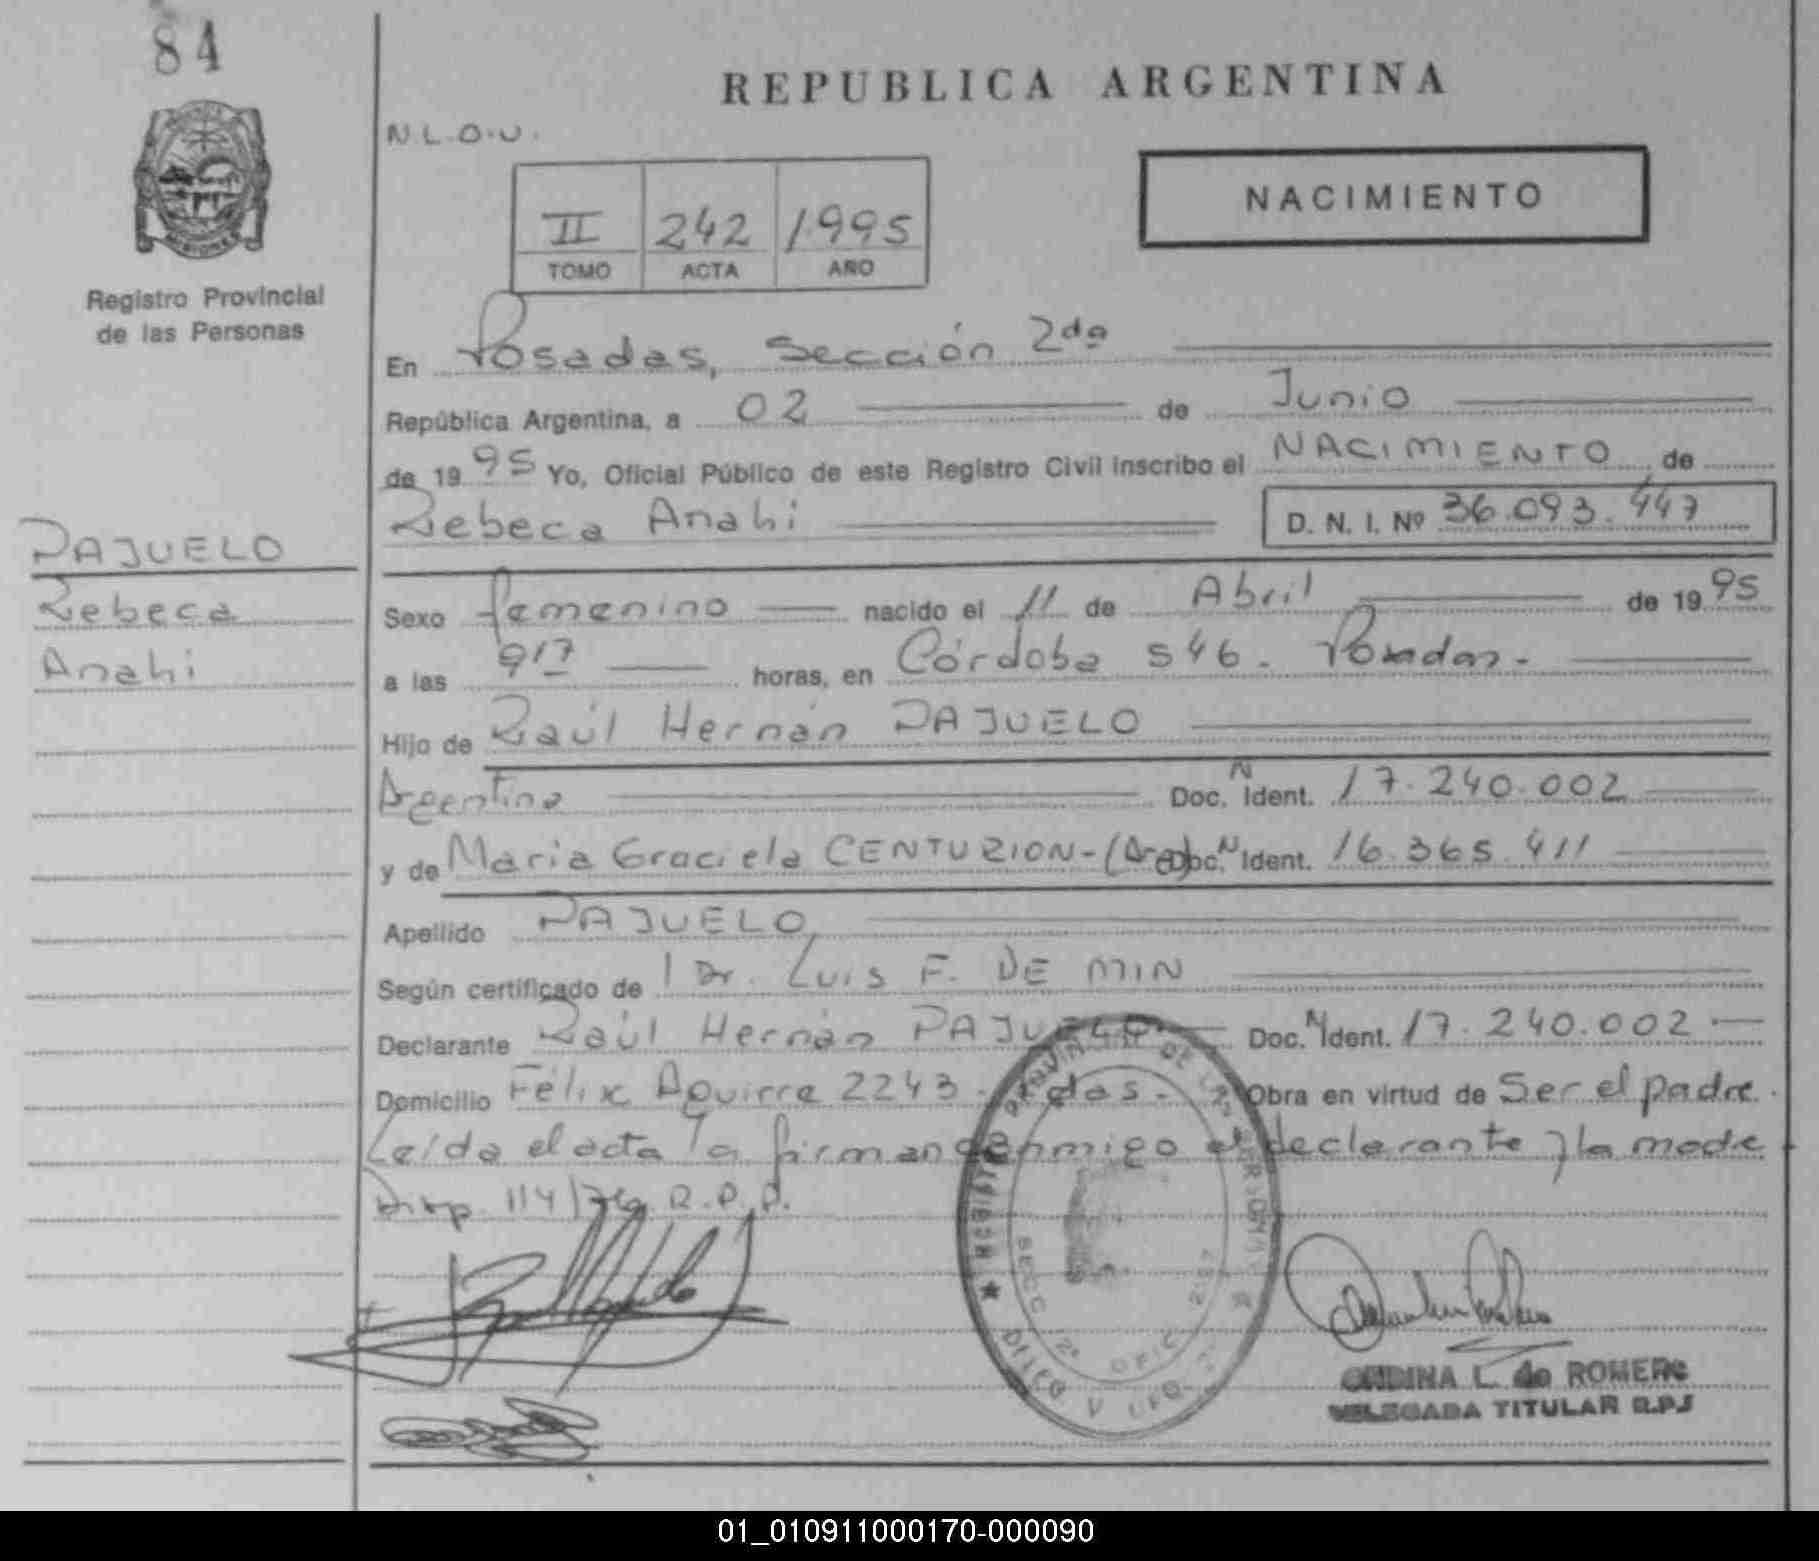 84
REPUBLICA ARGENTINA
N.L.O.U.
NACIMIENTO
II 242 1995
TOMO ACTA AÑO
Registro Provincial
de las Personas
En Posadas, Sección 2da
República Argentina, a 02 de Junio
de 1995 Yo, Oficial Público de este Registro Civil inscribo el NACIMIENTO de
Rebeca Anahi D. N. I. Nº 36.093.447
PAJUELO
Rebeca
Anahi
Sexo femenino nacido el 11 de Abril de 1995
a las 917 horas, en Córdoba 546. Posadas.-
Hijo de Raúl Hernán PAJUELO
Argentina Doc. N Ident. 17.240.002
y de Maria Graciela CENTURION-(Arg) Doc. N Ident. 16.365.411
Apellido PAJUELO
Según certificado de l Dr. Luis F. DE MIN
Declarante Raúl Hernán PAJUELO Doc. N Ident. 17.240.002.-
Domicilio Félix Aguirre 2243. Pdas.- Obra en virtud de Ser el padre.
Leída el acta la firman conmigo el declarante y la madre.
Disp. 114/76 R.P.P.
REGISTRO PROVINCIAL DE LAS PERSONAS
SECC 2ª OFIC
ONDINA L. de ROMERO
DELEGADA TITULAR R.P.P
01_010911000170-000090